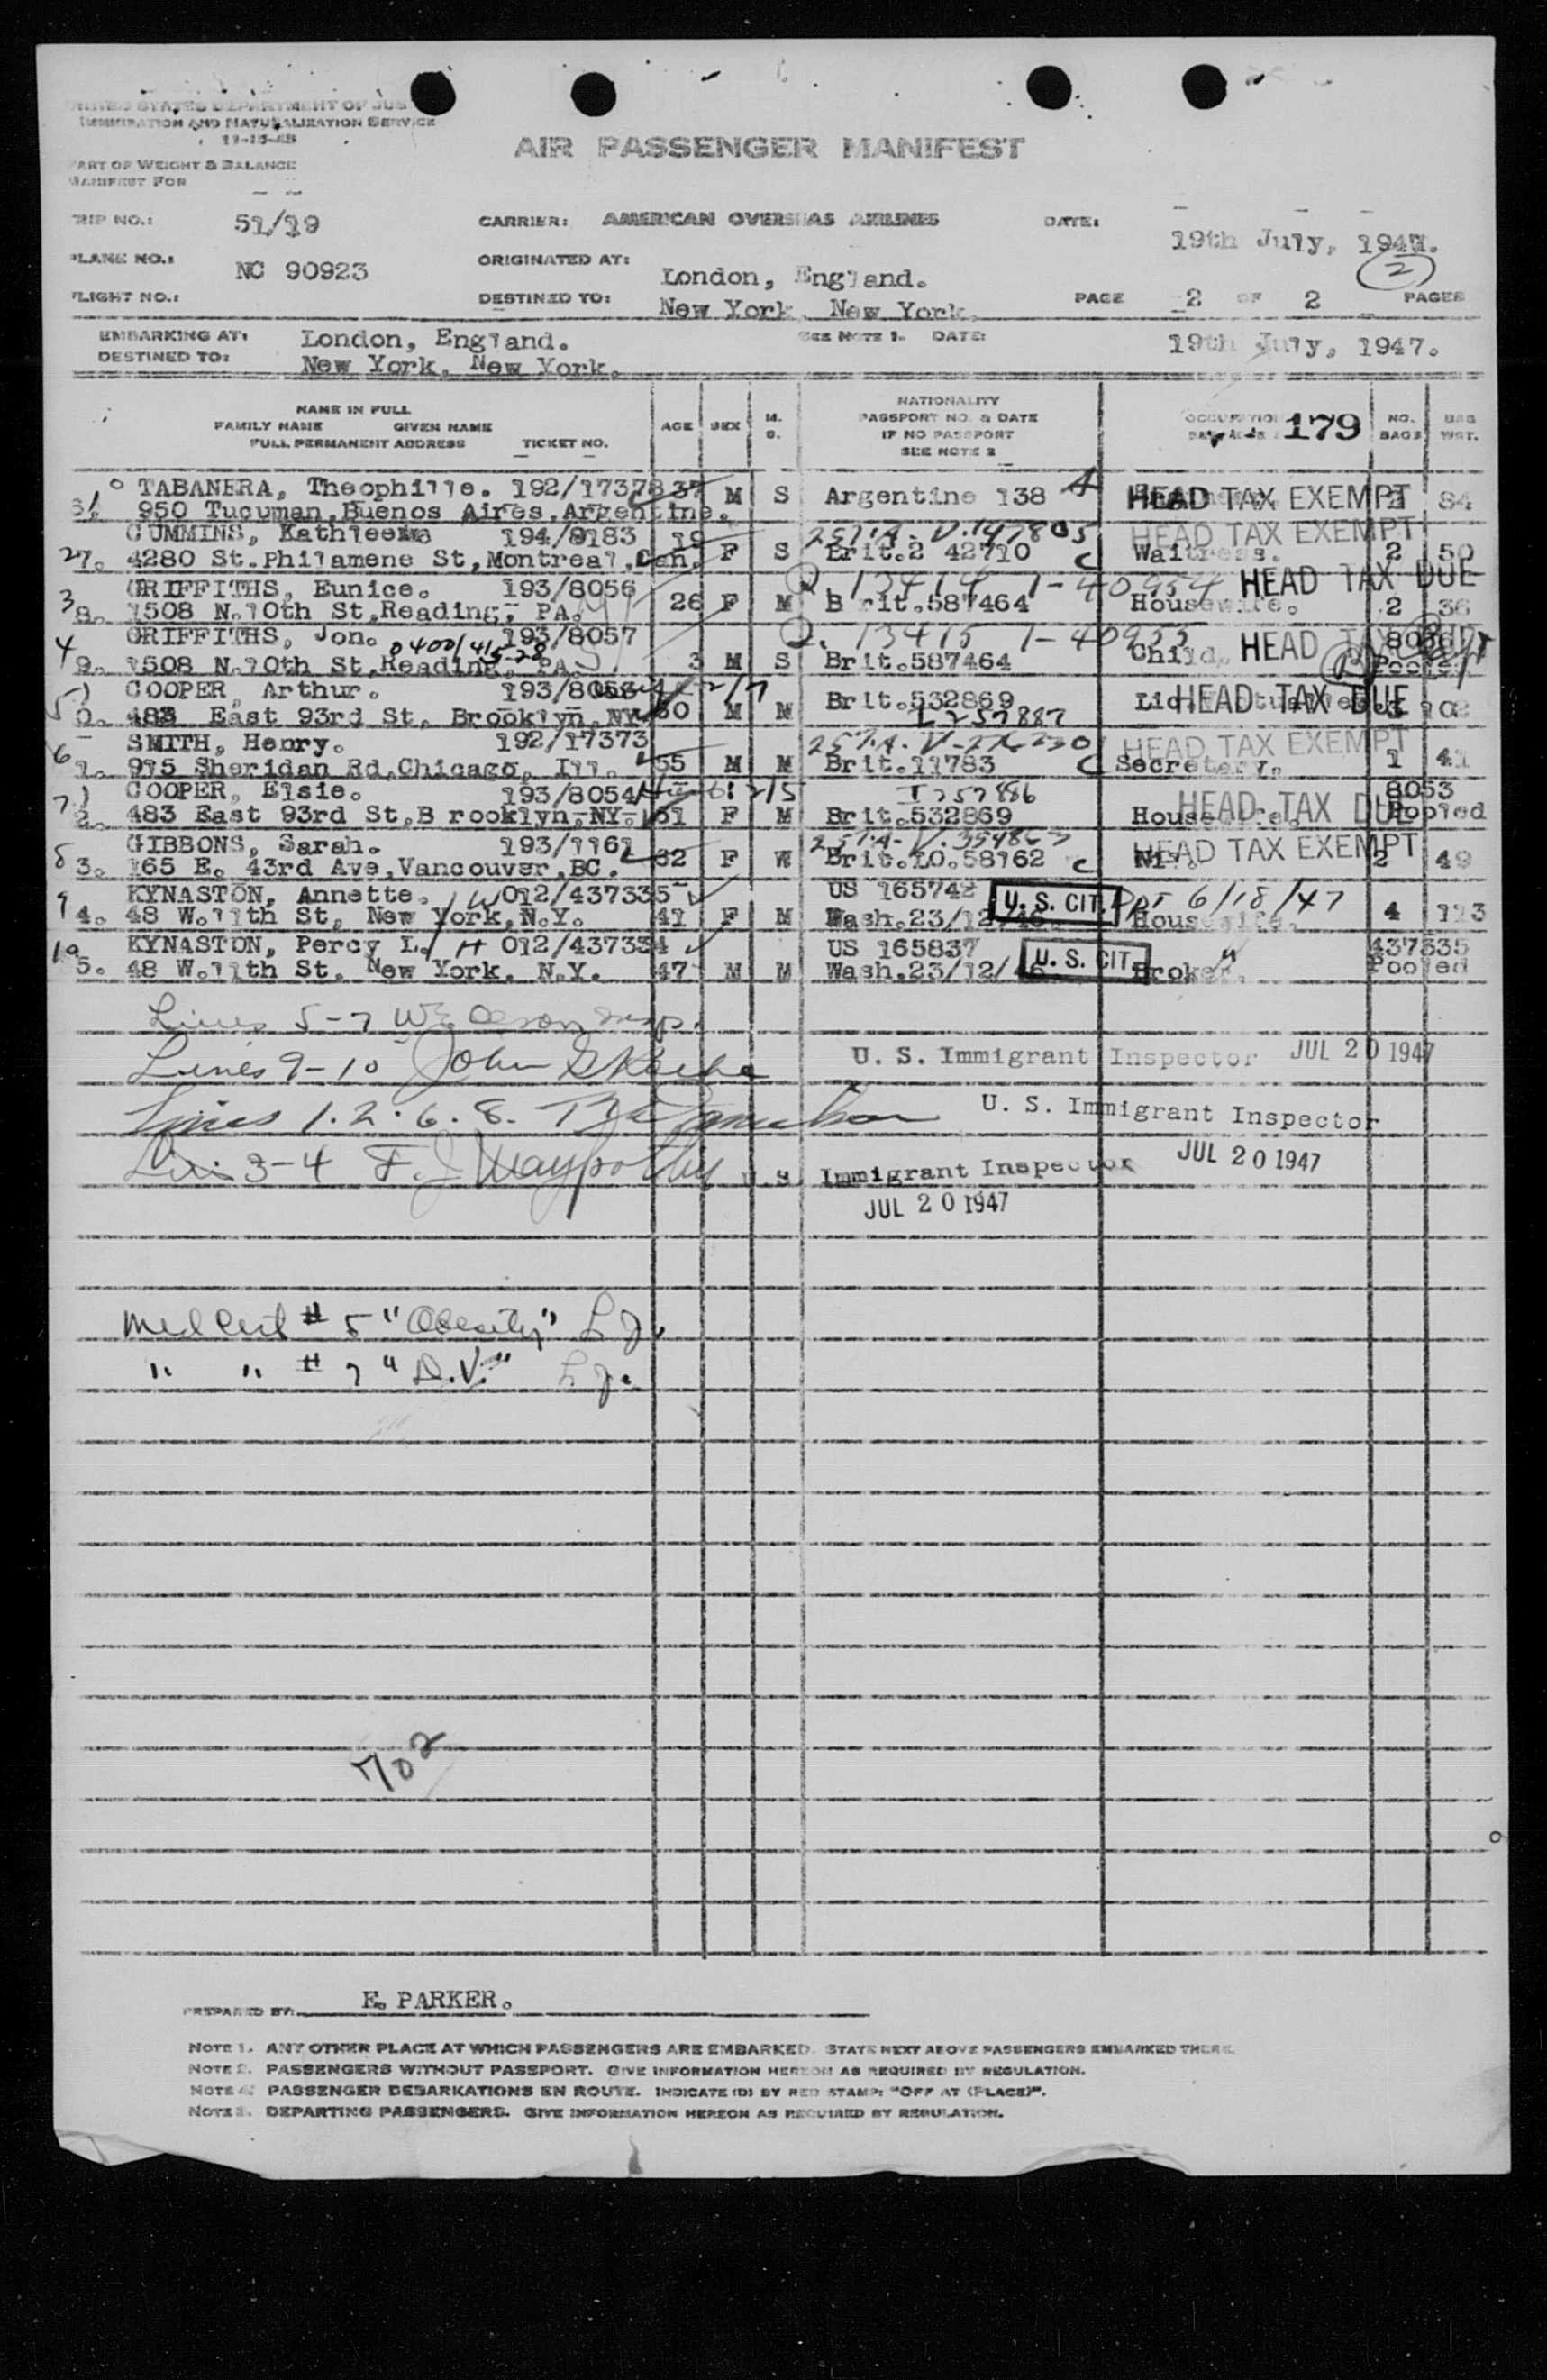 UNITED STATES DEPARTMENT OF JUS
IMMIGRATION AND NATURALIZATION SERVICE
11-15-45
AIR PASSENGER MANIFEST
PART OF WEIGHT & BALANCE
MANIFEST FOR
TRIP NO.: 51/19 CARRIER: AMERICAN OVERSEAS AIRLINES DATE: 19th July, 1947.
PLANE NO.: NC 90923 ORIGINATED AT: London, England. 2
FLIGHT NO.: DESTINED TO: New York, New York. PAGE 2 OF 2 PAGES
EMBARKING AT: London, England. SEE NOTE 1. DATE: 19th July, 1947.
DESTINED TO: New York, New York.
NAME IN FULL
FAMILY NAME GIVEN NAME
FULL PERMANENT ADDRESS TICKET NO. AGE SEX M. S. NATIONALITY PASSPORT NO. & DATE IF NO PASSPORT SEE NOTE 2 OCCUPATION 179 NO. BAGS BAG WGT.
TABANERA, Theophille. 192/17378 37 M S Argentine 138 HEAD TAX EXEMPT 84
950 Tucuman, Buenos Aires, Argentine.
CUMMINS, Kathleen 194/9183 19 F S V.147805 HEAD TAX EXEMPT
27. 4280 St. Philamene St, Montreal, Can. Brit.2 42710 C Waitress. 2 50
GRIFFITHS, Eunice. 193/8056 26 F M 13414 1-40954 HEAD TAX DUE
3 8. 1508 N.10th St, Reading, PA. Brit.587464 Housewife. 2 36
GRIFFITHS, Jon. 193/8057 13415 1-40955 HEAD TAX
4 9. 1508 N.10th St, Reading, PA. 3 M S Brit.587464 Child. Pooled
COOPER, Arthur. Brit.532869 HEAD TAX DUE
5 0. 483 East 93rd St, Brooklyn, NY. 60 M M I 257887
SMITH, Henry. 192/17373 HEAD TAX EXEMPT
6 1. 915 Sheridan Rd, Chicago, Ill. 55 M M Brit.11783 C Secretary. 1 41
COOPER, Elsie. 193/8054 I 257886 HEAD TAX DUE 8053
7 2. 483 East 93rd St, B rooklyn, NY. 61 F M Brit.532869 Housewife. Pooled
GIBBONS, Sarah. 193/1161 HEAD TAX EXEMPT
8 3. 165 E. 43rd Ave, Vancouver, BC. 62 F W Brit.LO.58162 C Nil. 2 49
KYNASTON, Annette. W 012/437335 US 165742 U. S. CIT. Dpt 6/18/47
9 4. 48 W.11th St, New York, N.Y. 41 F M Wash.23/12/46. Housewife. 4 113
KYNASTON, Percy L. H 012/437334 US 165837 U. S. CIT. " 437335
10 5. 48 W.11th St, New York, N.Y. 47 M M Wash.23/12/46. Broker. Pooled
Lines 5-7 Insp.
Lines 9-10 John U. S. Immigrant Inspector JUL 20 1947
Lines 1. 2. 6. 8. U. S. Immigrant Inspector
Lines 3-4 F. J U. S. Immigrant Inspector JUL 20 1947
JUL 20 1947
Med Cert # 5 "Obesity" L.J.
" " # 7 "D.V." L.J.
702
PREPARED BY: E. PARKER.
NOTE 1. ANY OTHER PLACE AT WHICH PASSENGERS ARE EMBARKED. STATE NEXT ABOVE PASSENGERS EMBARKED THERE.
NOTE 2. PASSENGERS WITHOUT PASSPORT. GIVE INFORMATION HEREON AS REQUIRED BY REGULATION.
NOTE 4. PASSENGER DEBARKATIONS EN ROUTE. INDICATE (D) BY RED STAMP: "OFF AT (PLACE)".
NOTE 3. DEPARTING PASSENGERS. GIVE INFORMATION HEREON AS REQUIRED BY REGULATION.